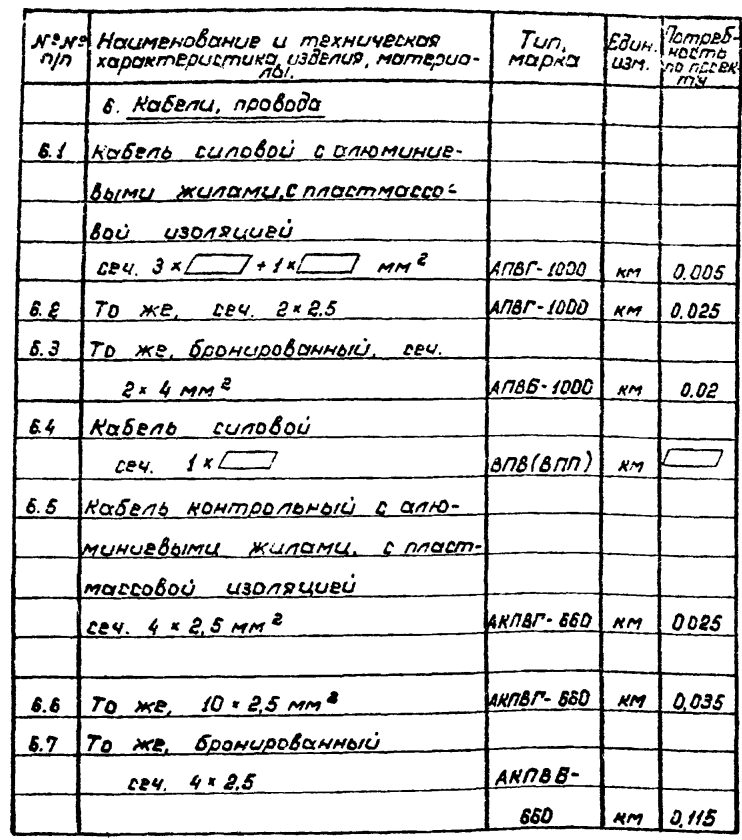 №№ п/п Наименование и техническая характеристика изделия, материалы. Тип, марка Един. изм. Потребность по проекту
6. Кабели, провода
6.1 Кабель силовой с алюминие-
выми жилами, с пластмассо-
вой изоляцией
сеч. 3 × + 1 × мм² АПВГ-1000 км 0.005
6.2 То же, сеч. 2 × 2.5 АПВГ-1000 км 0.025
6.3 То же, бронированный, сеч.
2 × 4 мм² АПВБ-1000 км 0.02
6.4 Кабель силовой
сеч. 1 × ВПВ(ВПП) км
6.5 Кабель контрольный с алю-
миниевыми жилами, с пласт-
массовой изоляцией
сеч. 4 × 2,5 мм² АКПВГ-660 км 0.025
6.6 То же, 10 × 2,5 мм² АКПВГ-660 км 0,035
6.7 То же, бронированный
сеч. 4 × 2.5 АКПВБ-
660 км 0,115